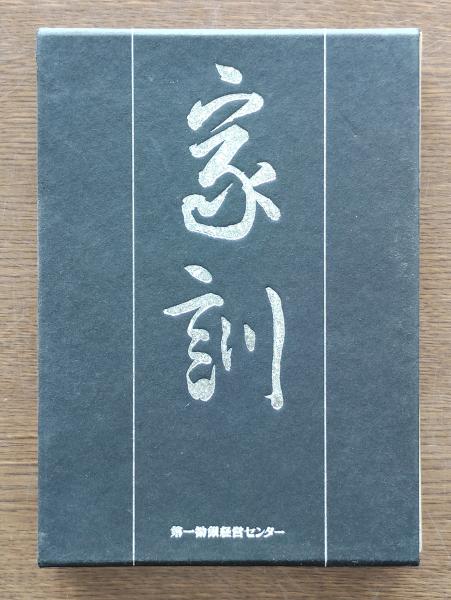 家訓
第一勧銀経営センター